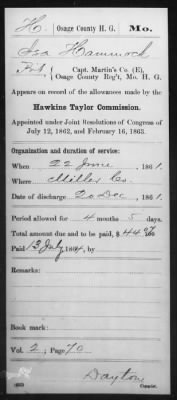 H. Osage County H. G. Mo.
Asa Hammock
Pvt., Capt. Martin's Co. (E),
Osage County Reg't, Mo. H. G.
Appears on record of the allowances made by the
Hawkins Taylor Commission.
Appointed under Joint Resolutions of Congress of
July 12, 1862, and February 16, 1863.
Organization and duration of service:
When 22 June, 1861.
Where Miller Co.
Date of discharge 20 Dec, 1861.
Period allowed for 4 months 5 days.
Total amount due and to be paid, $44
Paid 13 July 1864, by
Remarks:
Book mark:
Vol. 2; Page 70
Dayton
Copyist.